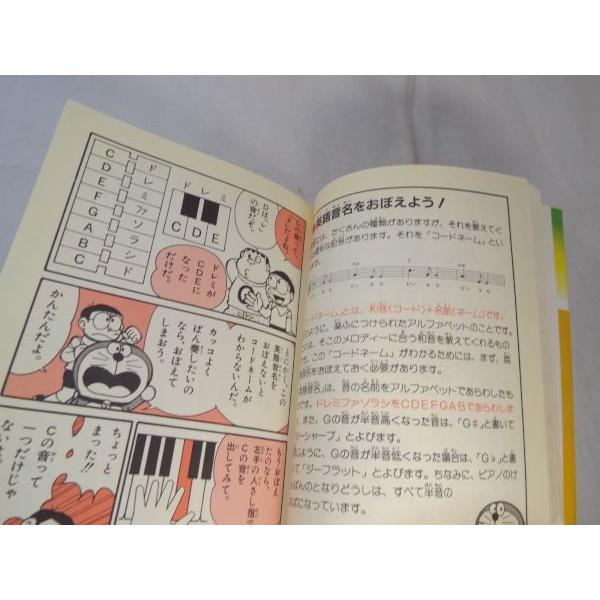 ド
レ
ミ
ファ
ソ
ラ
シ
ド
C
D
E
F
G
A
B
C
ドレミ
CDE
Cの音って、
「ド」だよね。
Dは「レ」
の音だ。
ドレミが
CDEに
なった
だけだ。
とにかく、この
英語音名を
おぼえないと
コードネームが
わからないんだ。
カッコよく
ばん奏したいの
なら、おぼえて
しまおう。
かんたんだよ。
もうおぼえ
たのなら、
左手の人さし指で
Cの音を
出してみて。
ちょっと
まった!!
Cの音って
一つだけじゃ
英語音名をおぼえよう!
には、たくさんの種類がありますが、それを教えてく
利な記号があります。それを「コードネーム」とい
Am
F
Am
ードネーム」とは、和音(コード)+名前(ネーム)です。
のように、楽ふにつけられたアルファベットのことです。
ずは、そこのメロディーに合う和音を教えてくれるもの
です。この「コードネーム」がわかるためには、まず、英
名をおぼえておく必要があります。
語音名」は、音の名前をアルファベットであらわしたも
す。ドレミファソラシをCDEFGABであらわしま
。また、Gの音が半音高くなった音は、「G♯」と書いて
ーシャープ」とよびます。
じように、Gの音が半音低くなった場合は、「G♭」と書
て「ジーフラット」とよびます。ちなみに、ピアノのけ
ばんのとなりどうしは、すべて半音の
ばになっています。